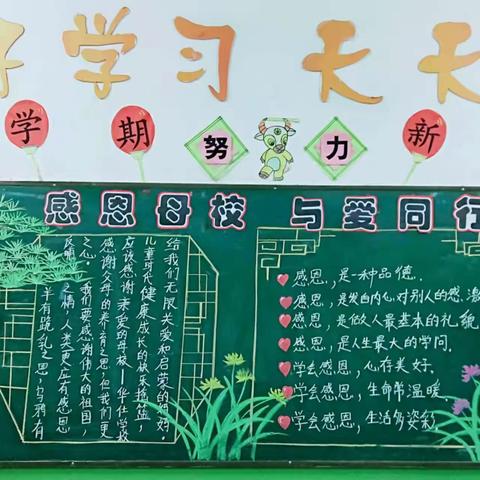 好学习 天天
学 期 努 力 新
感恩母校 与爱同行
羊有跪乳之恩，乌鸦有
反哺之情，人类更应有感恩
之心。我们要感谢伟大的祖国，
感谢父母的养育之恩，但我们更
应该感谢亲爱的母校——华仕学校
儿童时代健康成长的快乐摇篮，
给我们无限关爱和启蒙的
感恩，是一种品德.
感恩，是发自内心对别人的感激
感恩，是做人最基本的礼貌
感恩，是人生最大的学问.
学会感恩，心存美好.
学会感恩，生命常温暖.
学会感恩，生活多姿彩